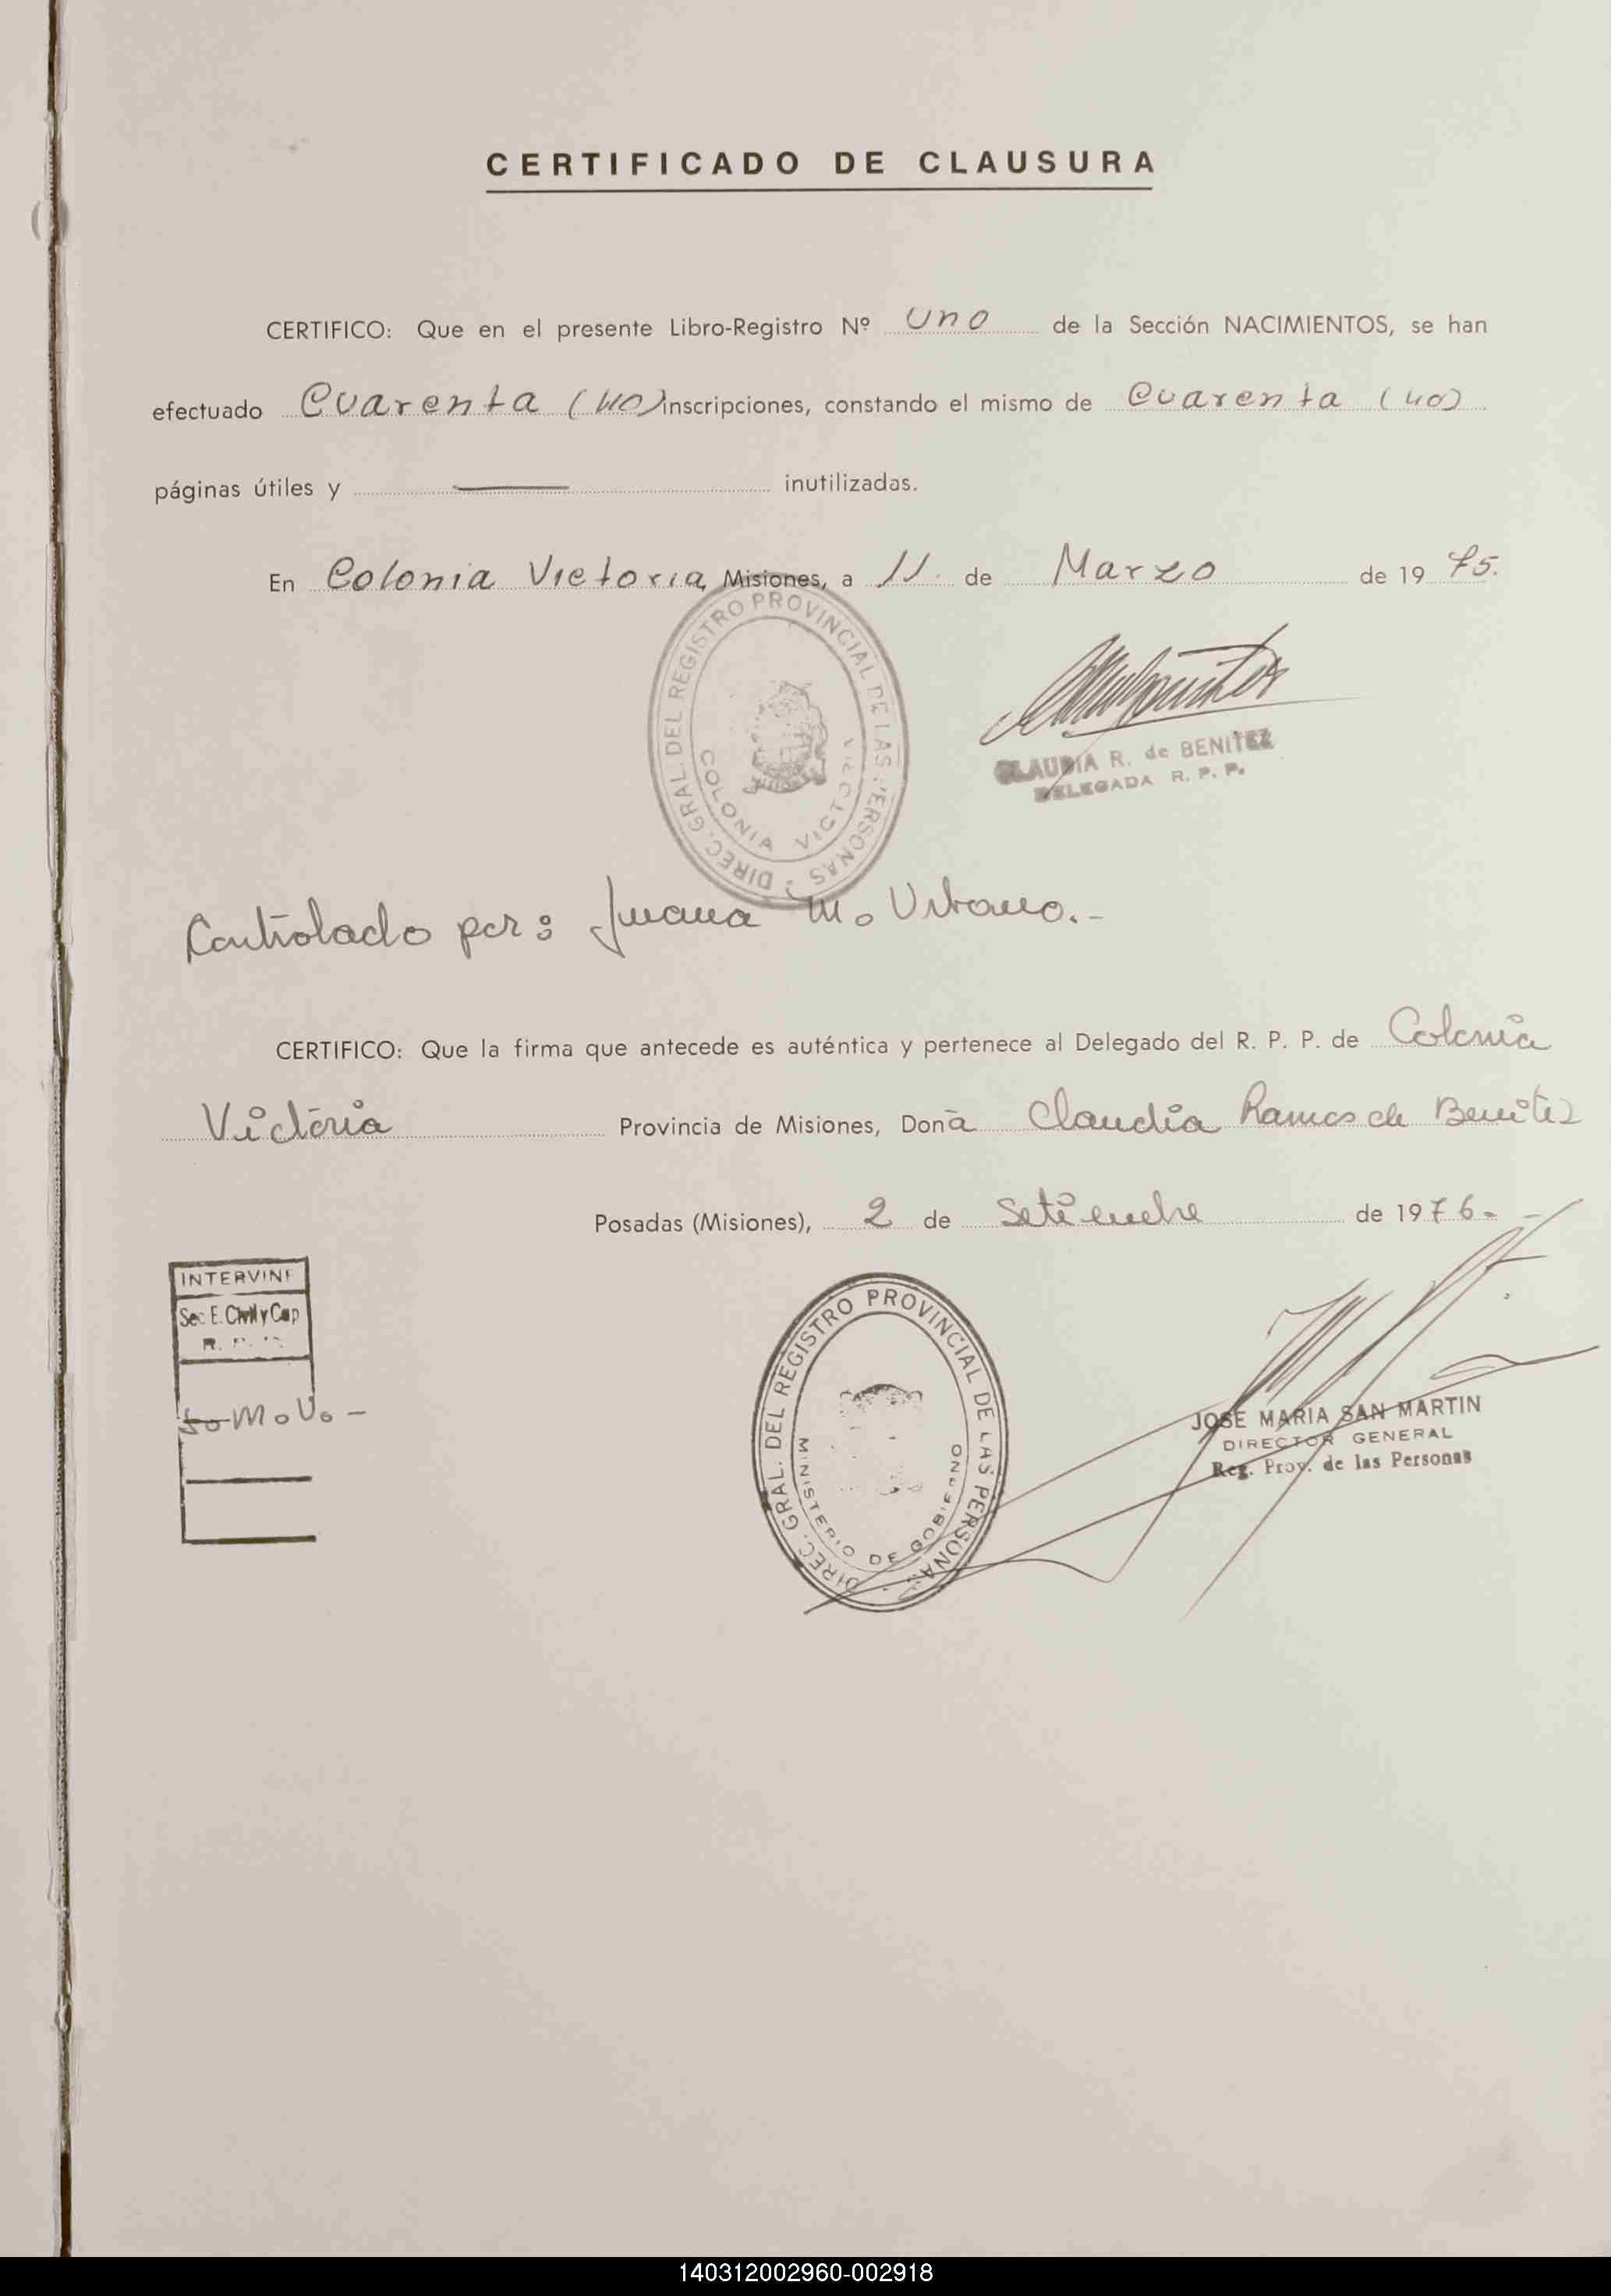 CERTIFICADO DE CLAUSURA
CERTIFICO: Que en el presente Libro-Registro Nº Uno de la Sección NACIMIENTOS, se han
efectuado Cuarenta (40) inscripciones, constando el mismo de Cuarenta (40)
páginas útiles y — inutilizadas.
En Colonia Victoria, Misiones, a 11. de Marzo de 1975.
DIREC. GRAL. DEL REGISTRO PROVINCIAL DE LAS PERSONAS
COLONIA VICTORIA
CLAUDIA R. de BENITEZ
DELEGADA R. P. P.
Controlado por: Juana M. Urbano.-
CERTIFICO: Que la firma que antecede es auténtica y pertenece al Delegado del R. P. P. de Colonia
Victoria Provincia de Misiones, Doña Claudia Ramos de Benitez
Posadas (Misiones), 2 de Setiembre de 1976.-
INTERVINE
Sec E. Civil y Cap
R.
M. U. -
DIREC. GRAL. DEL REGISTRO PROVINCIAL DE LAS PERSONAS
MINISTERIO DE GOBIERNO
JOSE MARIA SAN MARTIN
DIRECTOR GENERAL
Reg. Prov. de las Personas
140312002960-002918